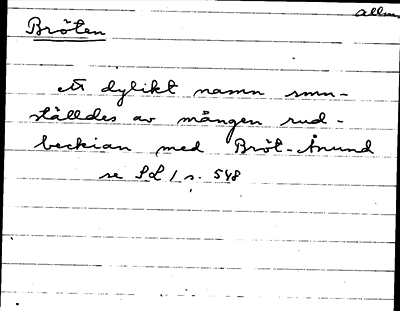 allm.
Bröten
ett dylikt namn smn-
ställdes av mången rud-
beckian med Bröt-Ånund
se SL 1 s. 548